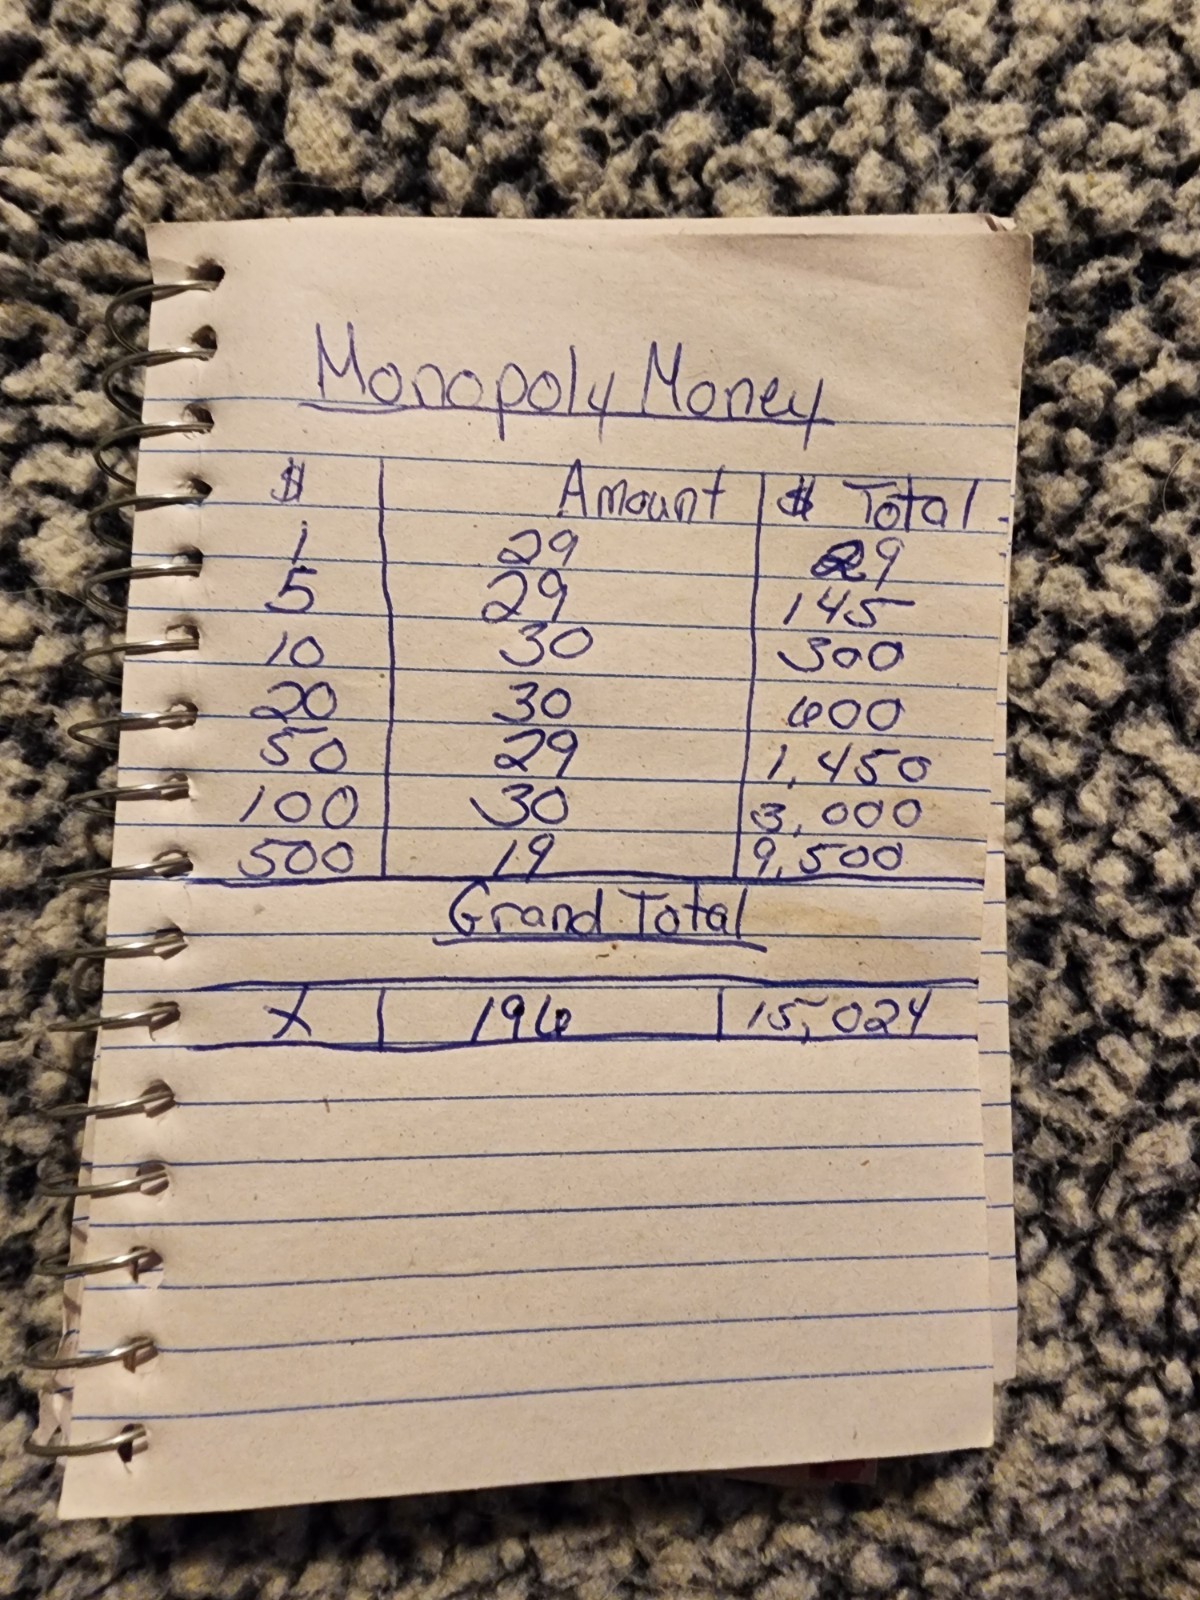 Monopoly Money
$ Amount $ Total
1 29 29
5 29 145
10 30 300
20 30 600
50 29 1,450
100 30 3,000
500 19 9,500
Grand Total
X 196 15,024